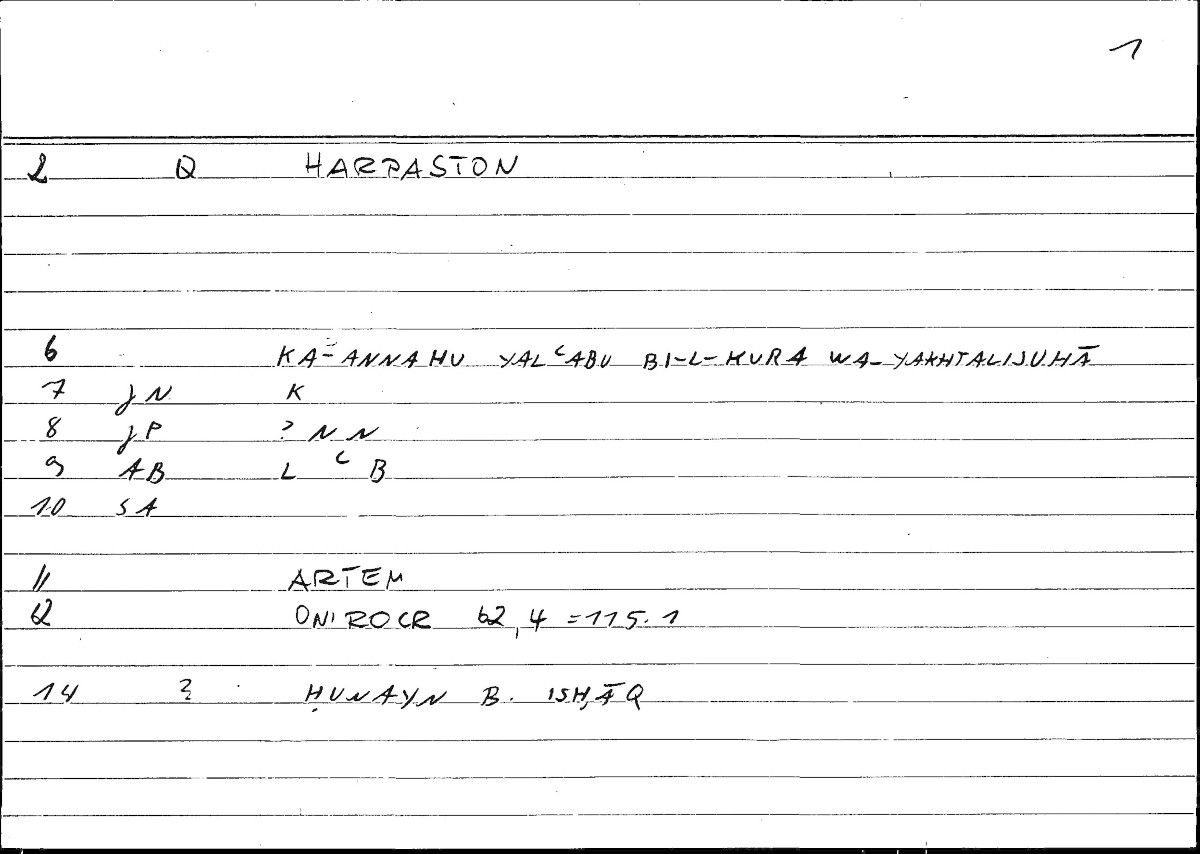 1
2 Q HARPASTON
6 KA-ANNAHU YALʿABU BI-L-KURA WA-YAKHTALIJUHĀ
7 JN K
8 JP ? N N
9 AB L ʿ B
10 SA
11 ARTEM
12 ONIROCR 62,4 =115.1
14 ? ḤUNAYN B. ISḤĀQ